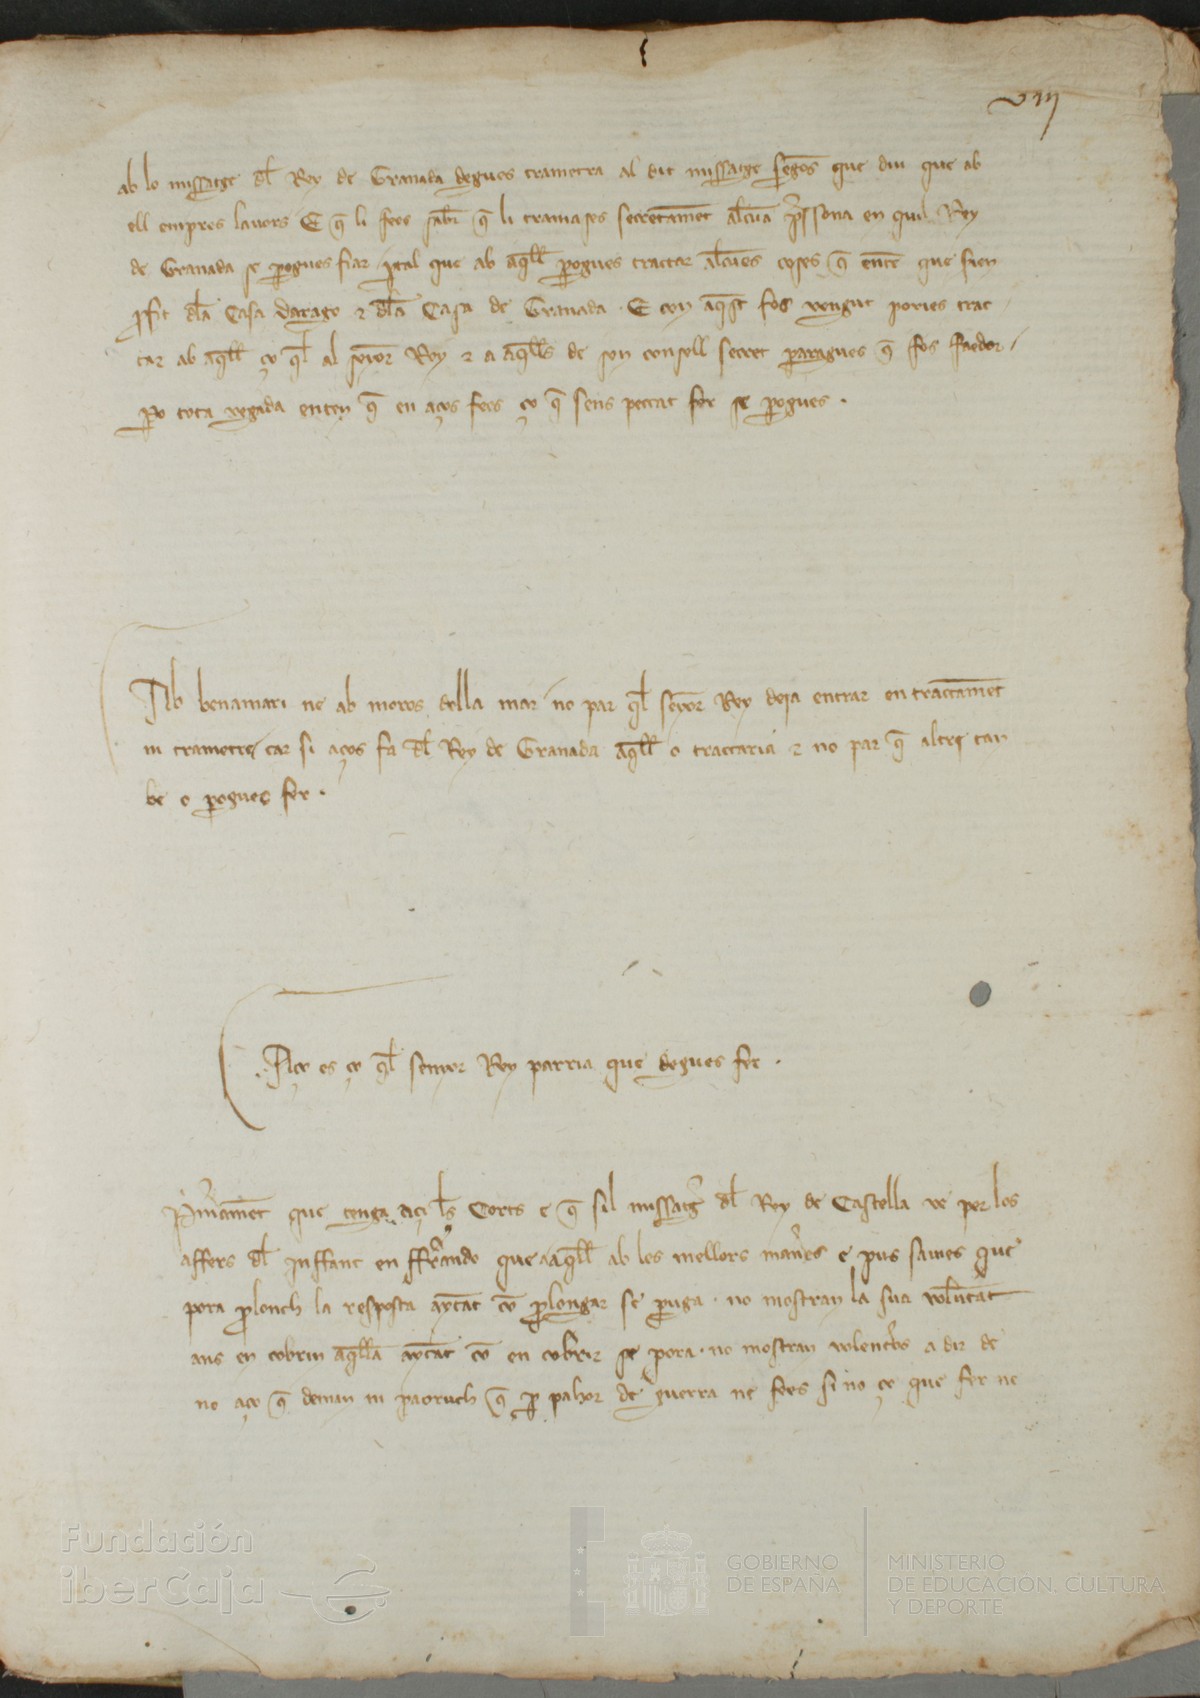 viij
ab lo missatge dl̄ Rey de Granada degues trametra al dit missatge segōs que diu que ab
ell empres lauors E q̄ li fees sabr̄ q̄ li tramases secretamēt alcūa p̄ssona en quil Rey
de Granada se pogues fiar ꝑtal que ab aq̄ll pogues tractar alcūes coses q̄ entē que sien
ꝓfit dl̄a Casa darago ⁊ dl̄a Casa de Granada · E con aq̄st fos vengut pories trac
tar ab aq̄ll ço q̄l al senyor Rey ⁊ a aq̄lls de son consell secret paragues q̄ fos faedor /
ꝑo tota vegada enten q̄ en aços fees ço q̄ sens peccat fer se pogues ·
Ab benamari ne ab moros della mar no par q̄l senyor Rey deja entrar en tractamēt
ni trametre car si aços fa dl̄ Rey de Granada aq̄ll o tractaria ⁊ no par q̄ altri tan
be o pogues fer ·
· Aço es ço q̄l senyor Rey parria que degues fer ·
P̄meramēt que tenga açi l̄s Corts e q̄ sil missatḡ dl̄ Rey de Castella ve per los
affers dl̄ Inffant en fferrando que a aq̄ll ab les mellors man̄es e pus sauies que
pora ꝓlonch la resposta aytāt cō ꝓlongar se puga · no mostran la sua volūtāt
ans en cobrin aq̄llā aytāt cō en cobrir se pora · no mostran volent̄s a dir de
no aço q̄ deman ni paoruch q̄ ꝑ pahor de guerra ne fees si no ço que fer ne
Fundación
iberCaja
GOBIERNO
DE ESPAÑA
MINISTERIO
DE EDUCACIÓN, CULTURA
Y DEPORTE